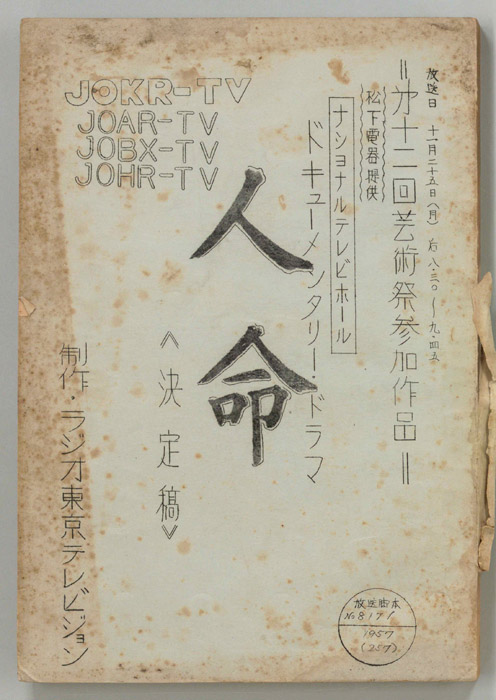 放送日 十一月二十五日(月) 后八・三〇〜九・四五
=才十二回芸術祭参加作品=
松下電器提供
ナショナルテレビホール
ドキューメンタリー・ドラマ
人命
《決定稿》
JOKR-TV
JOAR-TV
JOBX-TV
JOHR-TV
制作・ラジオ東京テレビジョン
放送脚本
No 8171
1957
(257)